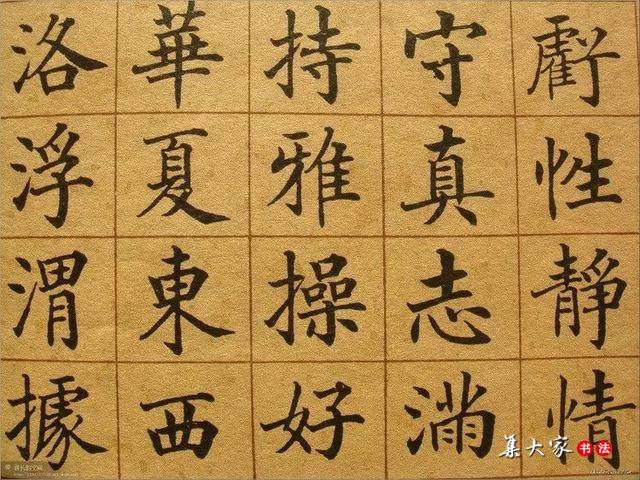 虧性靜情
守真志滿
持雅操好
華夏東西
洛浮渭據
集大家书法